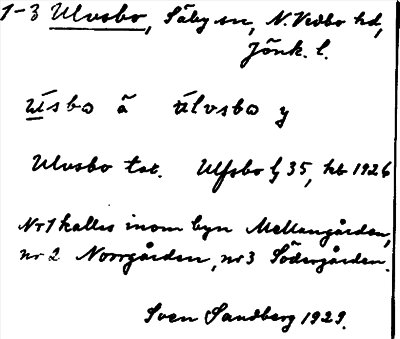 1-3 Ulvsbo, Säby sn, N. Vedbo hd,
Jönk. l.
úsbo ä úlvsbo y
Ulvsbo tax. Ulfsbo hj 35, kb 1926
Nr 1 kallas inom byn Mellangården,
nr 2 Norrgården, nr 3 Södergården.
Sven Sandberg 1929.